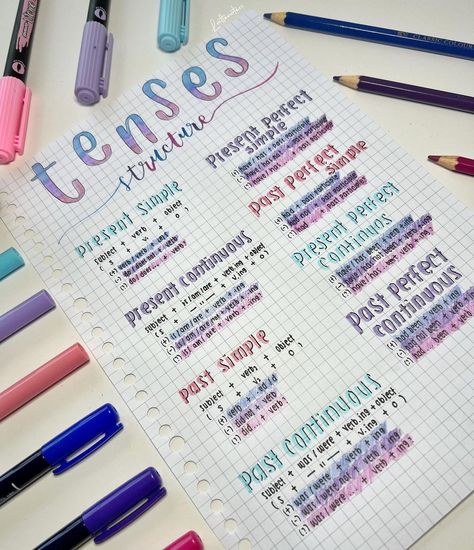 tenses
structure
present simple
subject + verb + object
( s + V₁ + o )
(+)
(-) do/does not + verb
(?) do/does... + verb?
present continuous
subject + is/am/are + verb.ing + object
(+) is/am/are + verb + ing
(-) is/am/are not + verb + ing
(?) is/am/are ... + verb + ing?
past simple
subject + verb + object
( s + V₂ + o )
(+) verb + ed/d
(-) did not + verb
(?) did... + verb?
past continuous
subject + was/were + verb.ing + object
( s + + v.ing + o )
(+) was/were + verb + ing
(-) was/were not + verb + ing
(?) was/were ... + verb + ing?
present perfect
simple
(+) have/has + past participle
(-) have/has not + past participle
(?) have/has ... + past participle
past perfect
simple
(+) had + past participle
(-) had not + past participle
(?) had ... + past participle
present perfect
continuous
(+) have/has been + verb + ing
(-) have/has not been
(?) have/has ... been
past perfect
continuous
(+) had been + verb + ing
(-) had not been
(?) had ... been + verb + ing?
CLASSIC COLOUR